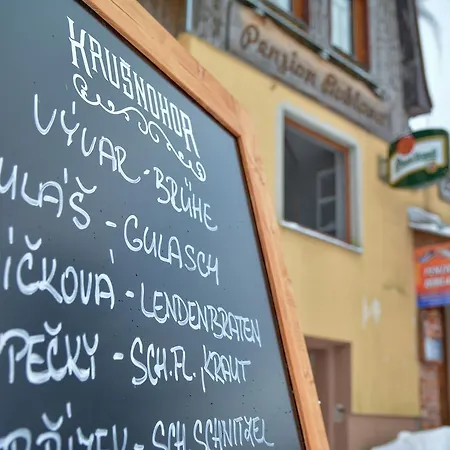 KRUŠNOHOR
VÝVAR - BRÜHE
ULÁŠ - GULASCH
ÍČKOVÁ - LENDENBRATEN
PEČKY - SCH.FL., KRAUT
ŘÍZEK - SCH. SCHNITZEL
Pension